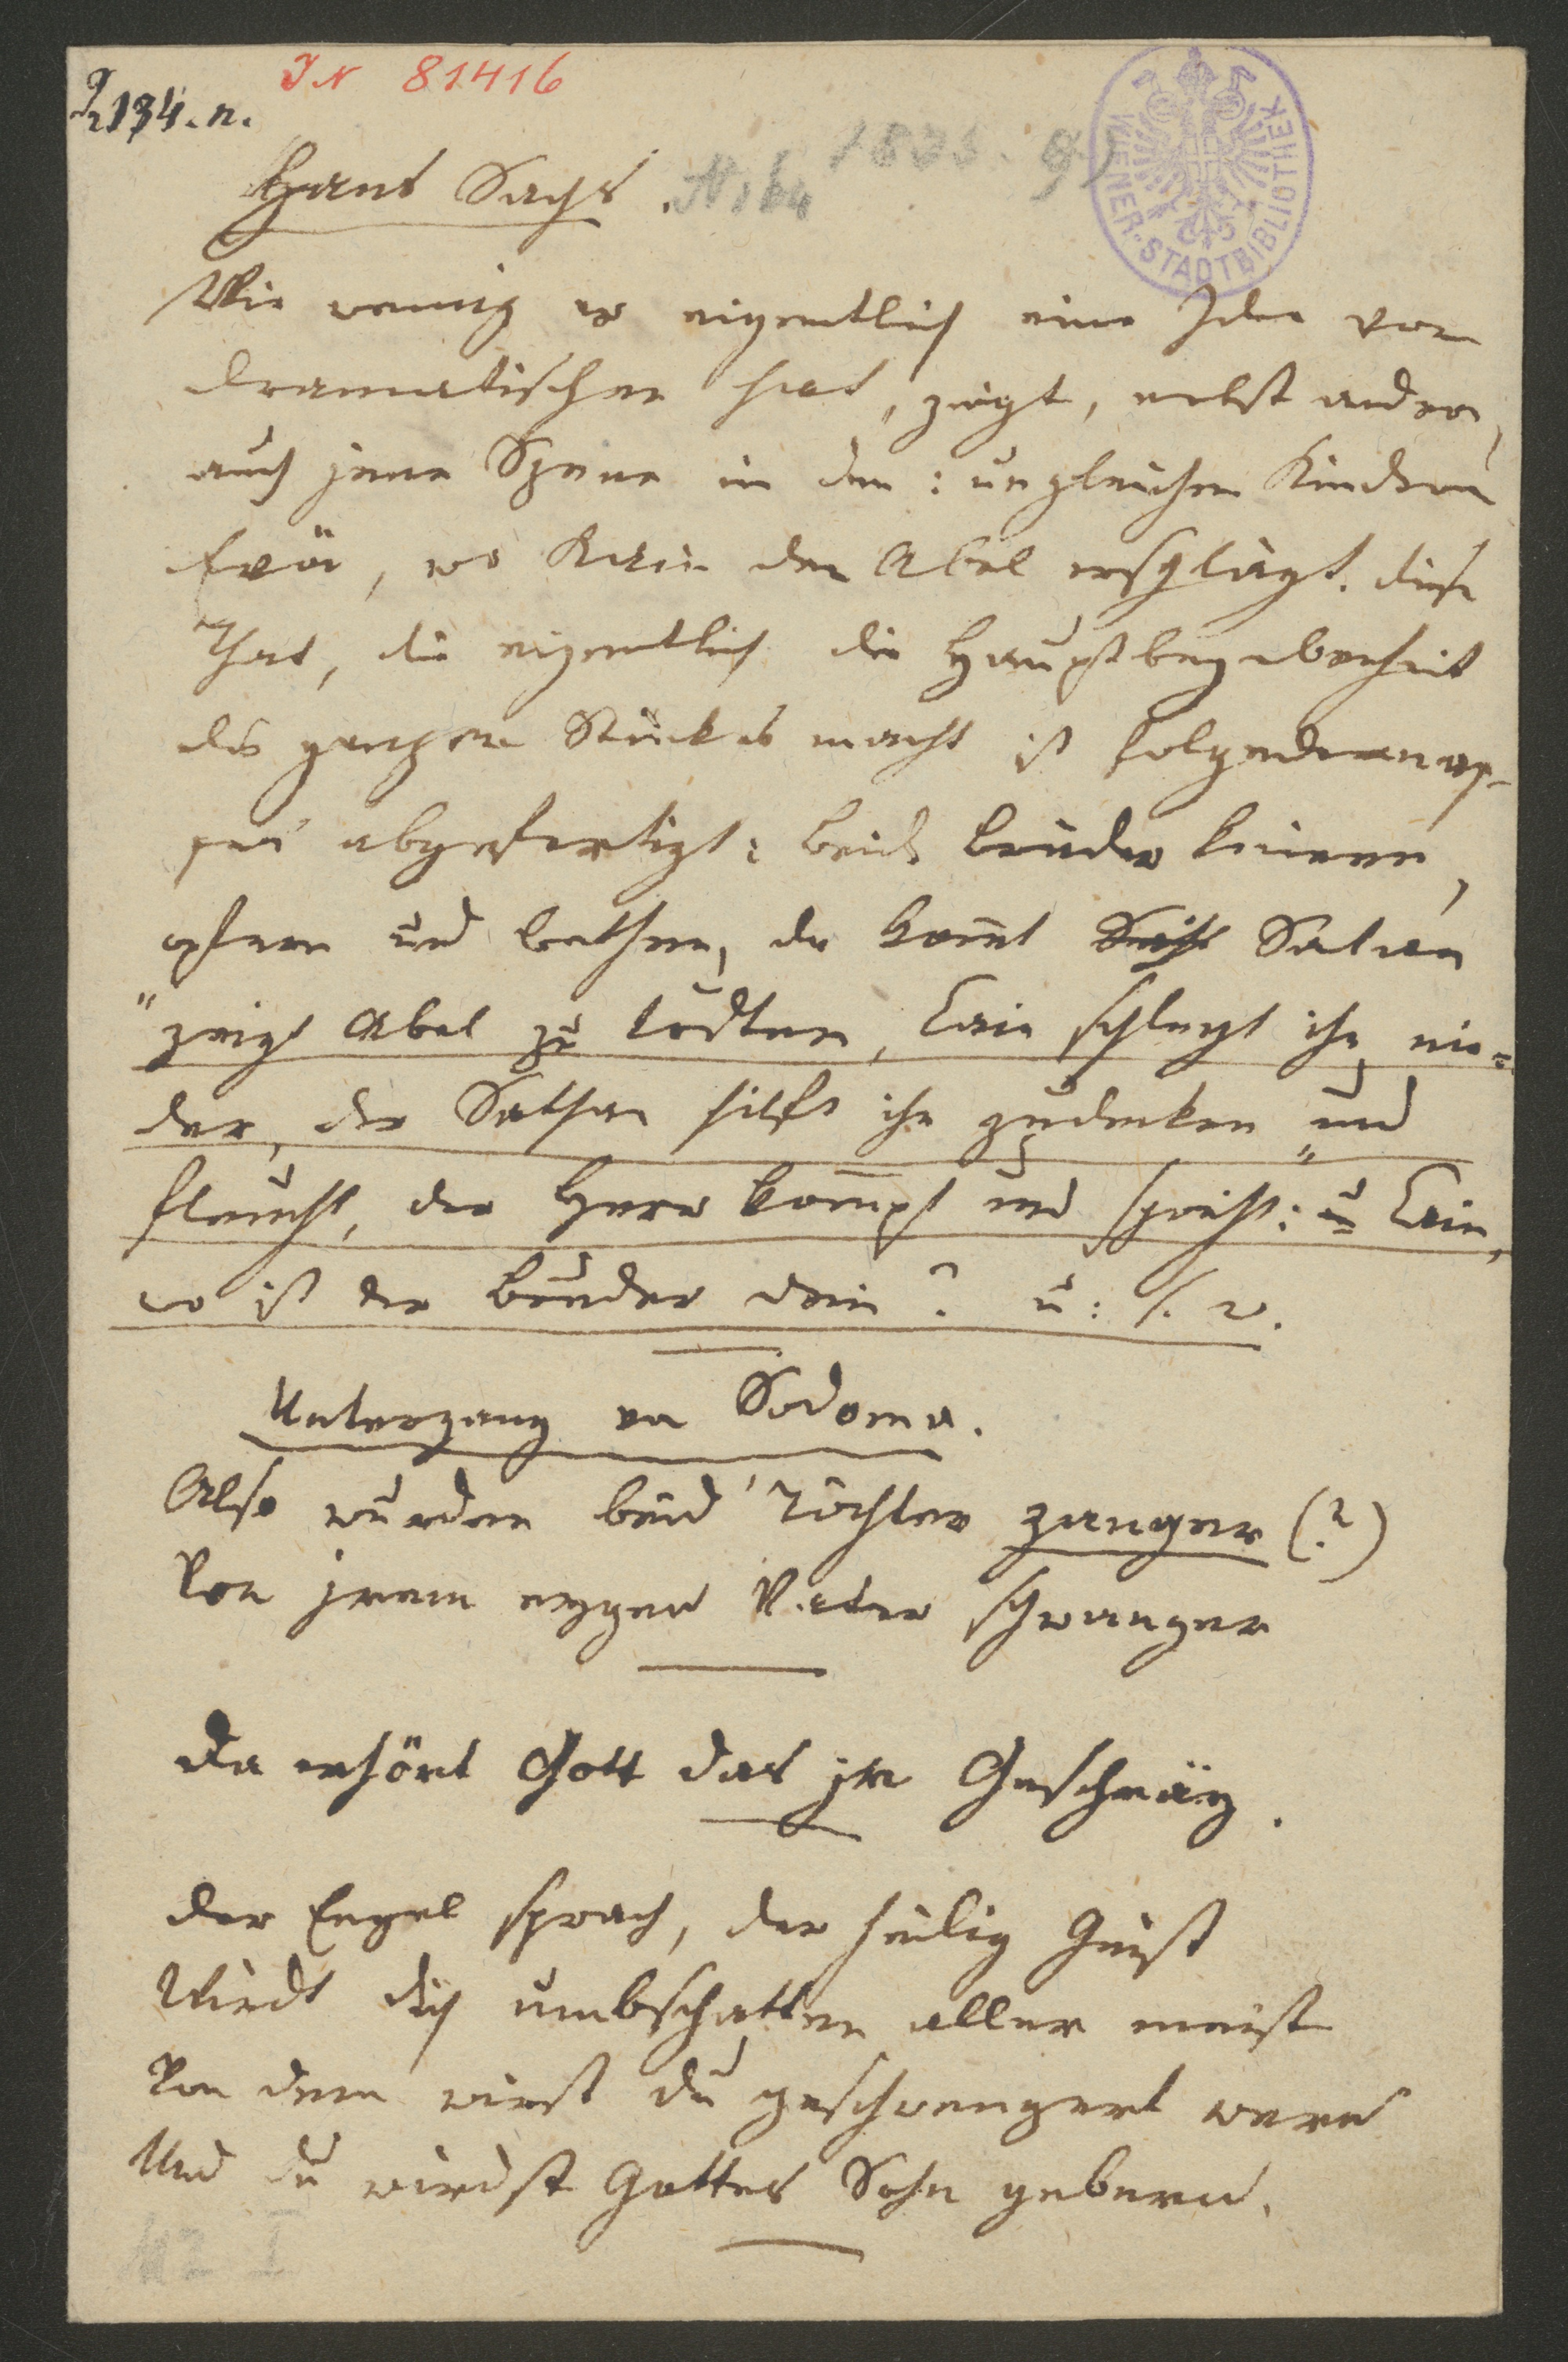 J. N. 81416
134. n.
Hans Sachs.
WIENER-STADTBIBLIOTHEK
Wie wenig er eigentlich eine Idee vom
dramatischen hat, zeigt, nebst andern,
auch jene Szene in den: ungleichen Kindern
Evä, wo Kain den Abel erschlägt. Diese
That, die eigentlich die Hauptbegebenheit
des ganzen Stückes macht ist folgendermas-
sen abgefertigt: beide Brüder knieen,
opfern und bethen, da kommt Satan
"zeigt Abel zu tödten, Cain schlegt ihn nie=
der, der Sathan hilft ihn zudecken" und
fleucht, der Herr kompt und spricht: Cain,
wo ist der Bruder dein? u: s. w.
Untergang von Sodoma.
Also wurden beid Töchter zanger (?)
Von jrem eygen Vater schwanger
Da erhört Gott das jr Geschräy.
Der Engel sprach, der heilig Geist
Wirdt dich umbschatten aller meist
Von dem wirst du geschwengert wern
Und du wirdst Gottes Sohn gebern.